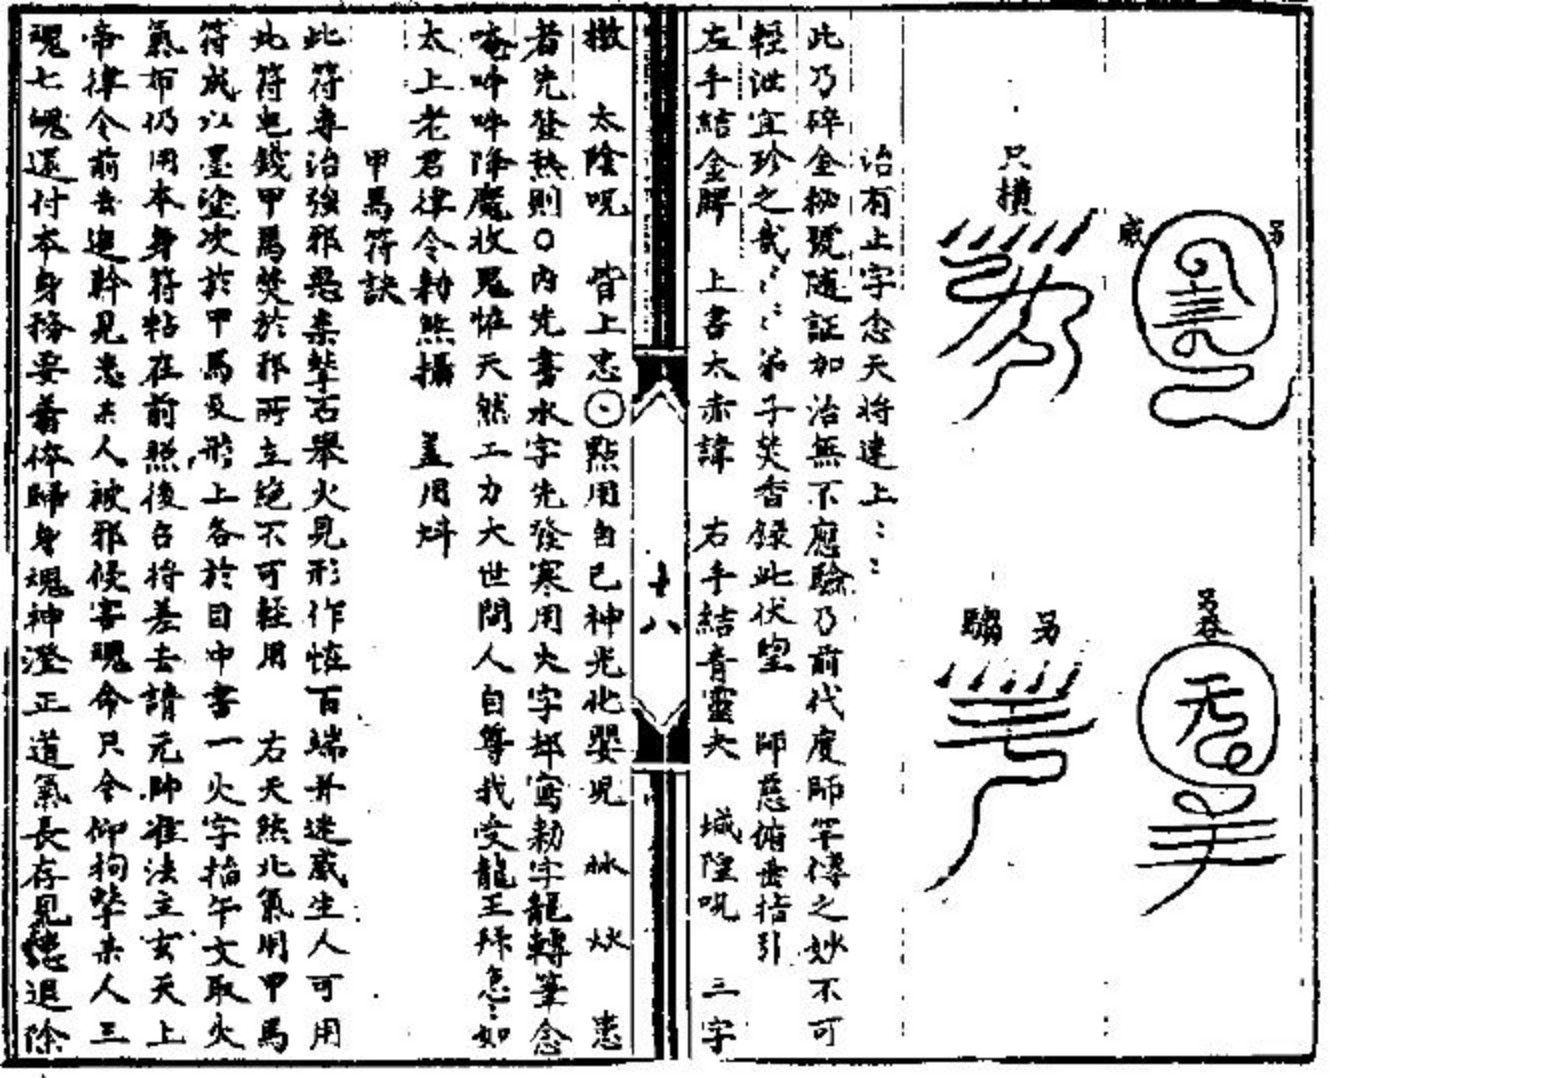 另
咸
另吞
只橫
另
治有上字念天将建上
此乃碎全秘號随証加治無不應驗乃前代度師罕傳之妙不可
輕泄宜珍之哉弟子焚香録此伏望 師慈俯垂指引
左手結金 上書太赤諱 右手結青靈夬 城隍呪 三字
十八
撒 太陰呪 皆上忠點用自己神光化嬰児
者先發熱則〇内先書水字先發寒用火字却寫勅字龍轉筆念
唵吽吽降魔收鬼怪天然工力大世間人自尊我受龍王拜急如
太上老君律令勅煞攝 盖用
甲馬符訣
此符専治強邪惡祟擊石舉火見形作怪百端并迷惑生人可用
此符包錢甲馬焚於邪所立絶不可輕用 右天然北氣用甲馬
符成以墨塗次於甲馬及形上各於目中書一火字掐午文取火
氣布仍用本身符帖在前照後召将差去請元帥准法主玄天上
帝律令前去追斡見患某人被邪侵害魂命只今仰拘擊某人三
魂七魄還付本身務要著体歸身魂神澄正道氣長存見患退除